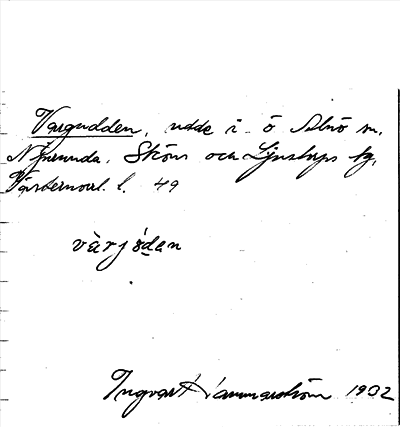 Vargudden, udde i ö Alnö sn,
Njurunda, Sköns och Ljustorps tg,
Västernorrl. l. 49
värjödan
Ingvar Hammarström 1932